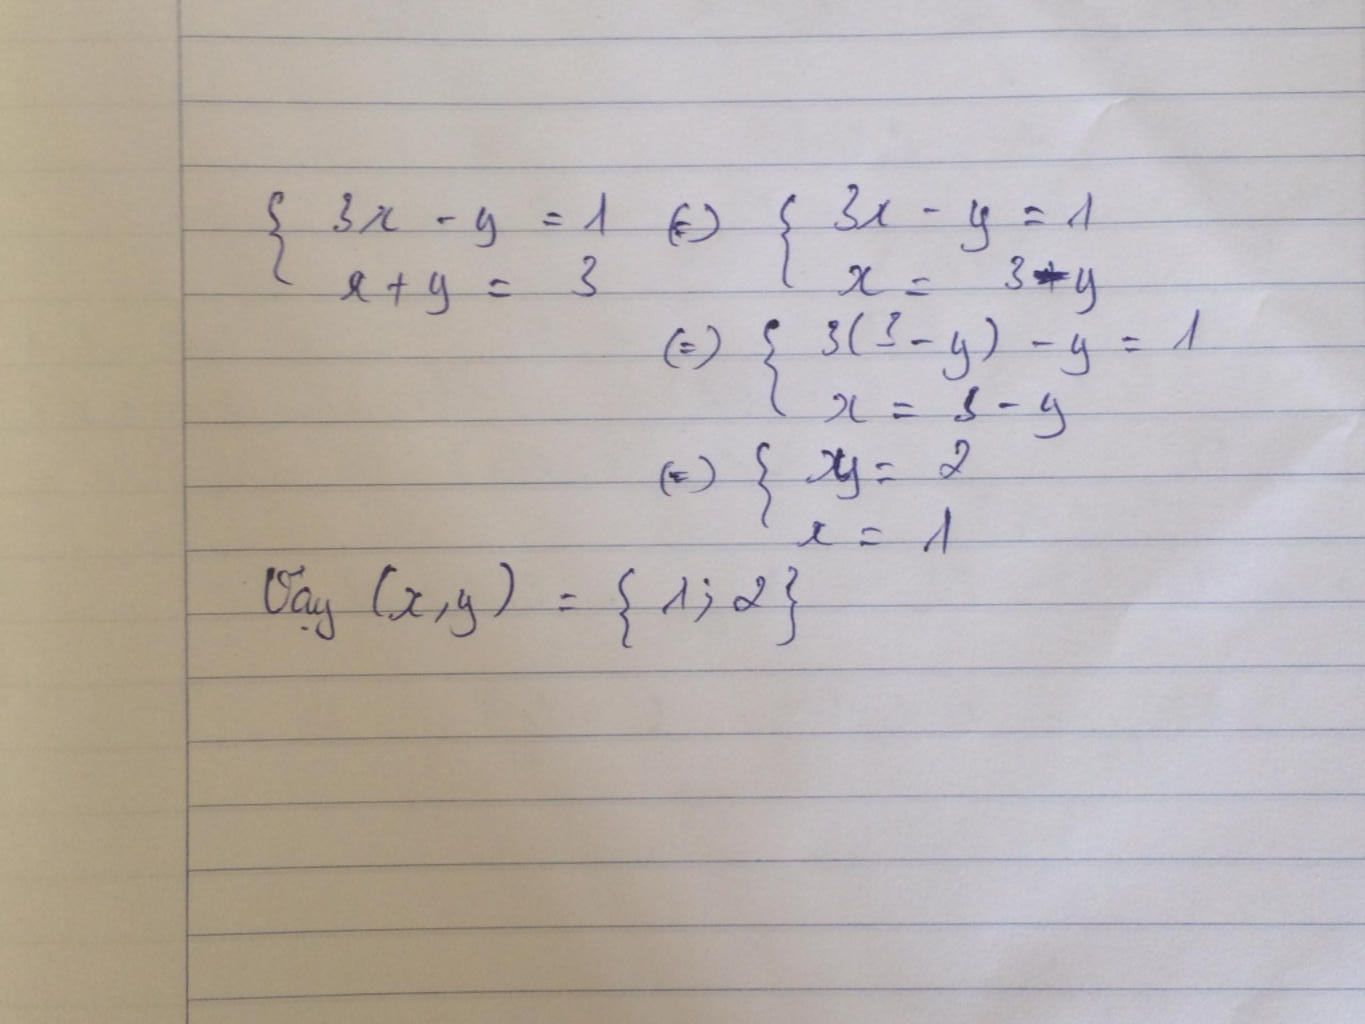 { 3x - y = 1 (=) { 3x - y = 1
x + y = 3 x = 3 - y
(=) { 3(3 - y) - y = 1
x = 3 - y
(=) { y = 2
x = 1
Vậy (x, y) = {1; 2}